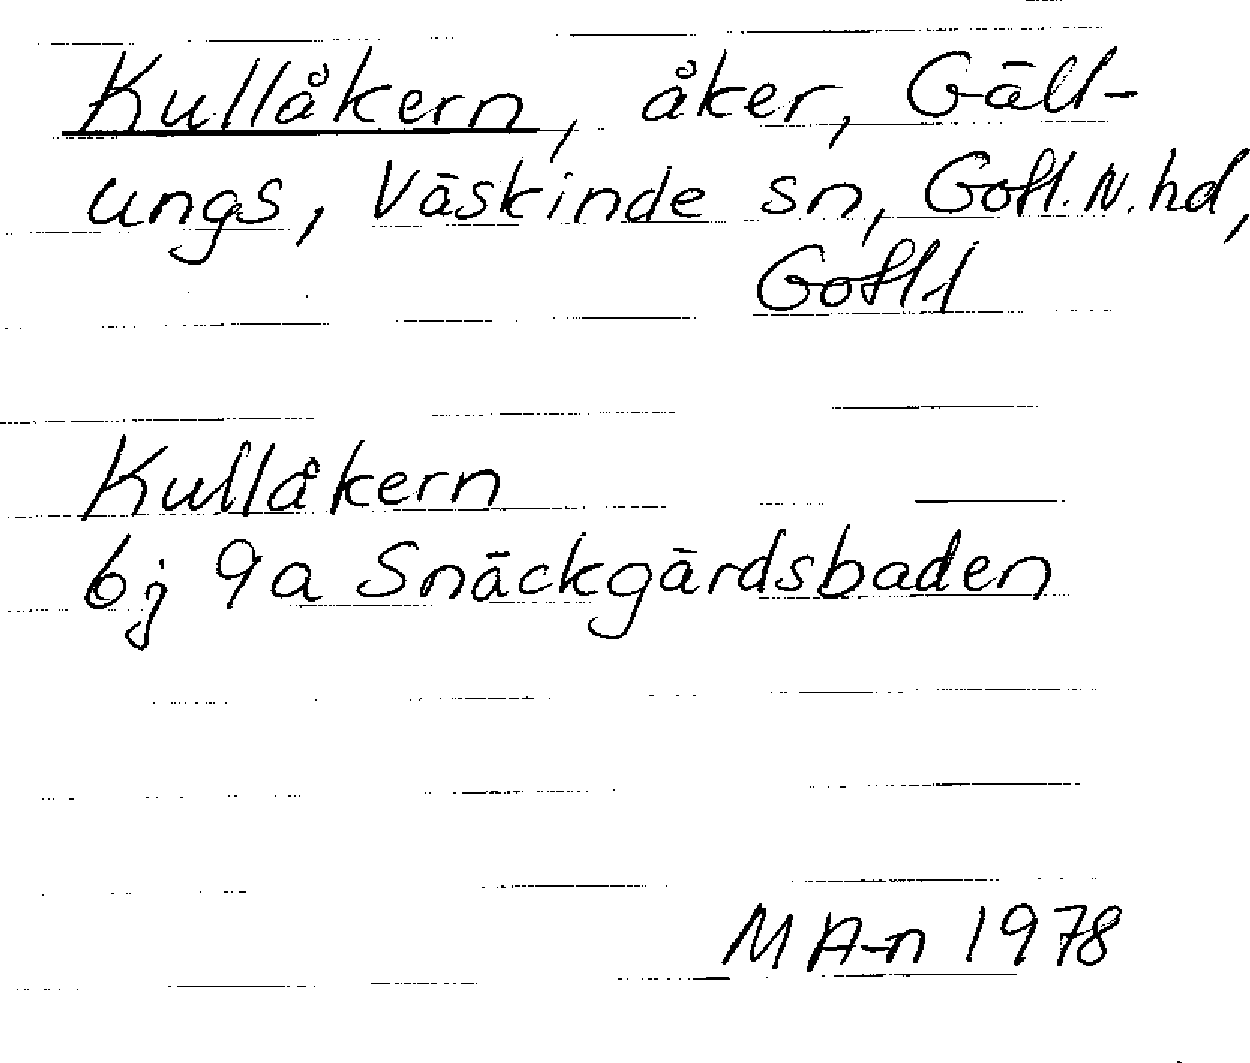 Kullåkern, åker, Gäll-
ungs, Väskinde sn, Gotl. N. hd,
Gotl l
Kullåkern
6j 9a Snäckgärdsbaden
M A-n 1978